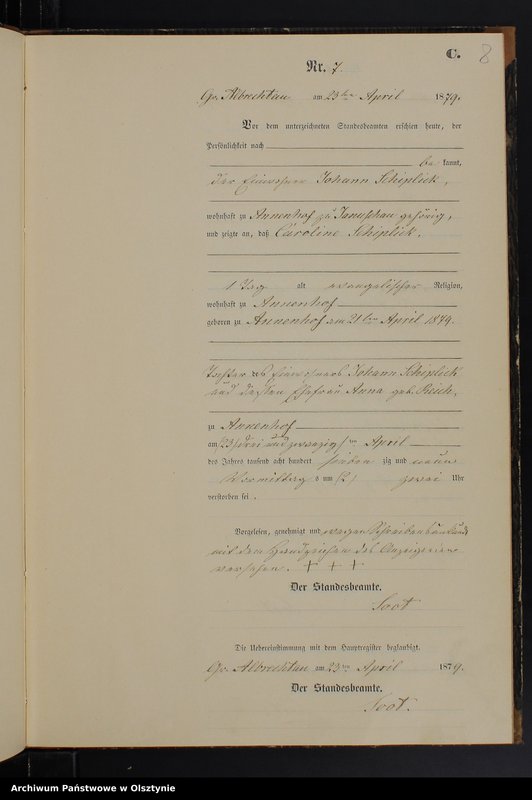 C. 8
Nr. 7.
Gr. Albrechtau am 23ten April 1879.
Vor dem unterzeichneten Standesbeamten erschien heute, der
Persönlichkeit nach
be kannt,
der Einwohner Johann Schiplick,
wohnhaft zu Annenhof zu Januschau gehörig,
und zeigte an, daß Caroline Schiplick,
1 Tag alt evangelischer Religion,
wohnhaft zu Annenhof
geboren zu Annenhof am 21ten April 1879.
Tochter des Einwohners Johann Schiplick
und dessen Ehefrau Anna geb. Reich,
zu Annenhof
am /23/ drei und zwanzig/ten April
des Jahres tausend acht hundert sieben zig und neun
Vormittag s um /2/ zwei Uhr
verstorben sei.
Vorgelesen, genehmigt und wegen Schreibensunkunde
mit dem Handzeichen des Anzeigenden
versehen. + + +
Der Standesbeamte.
Soot
Die Uebereinstimmung mit dem Hauptregister beglaubigt.
Gr. Albrechtau am 23ten April 1879.
Der Standesbeamte.
Soot.
Archiwum Państwowe w Olsztynie